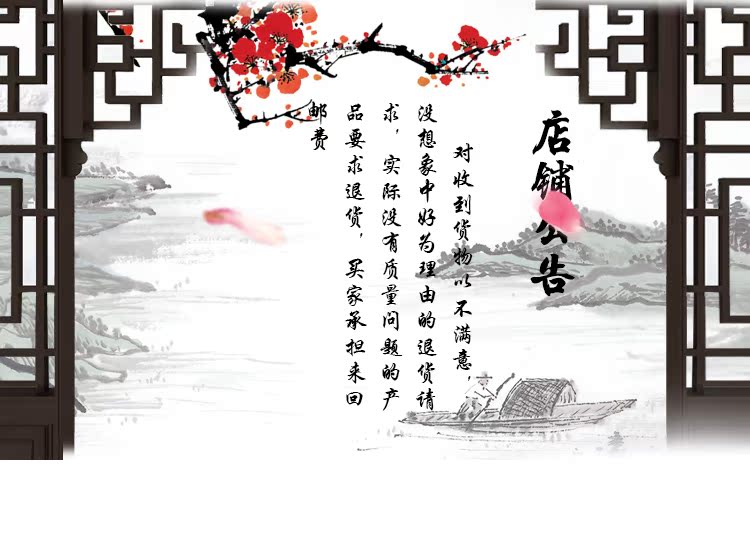 店铺公告
对收到货物以不满意，
没想象中好为理由的退货请
求，实际没有质量问题的产
品要求退货，买家承担来回
邮费